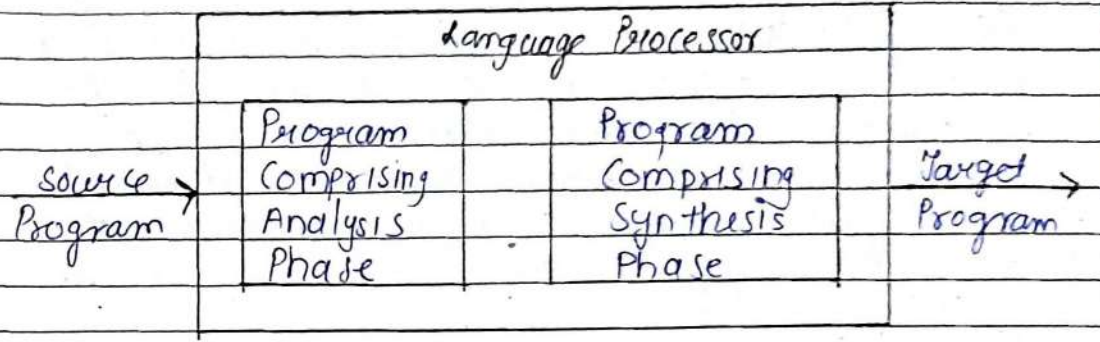 Language Processor
Source
Program
Program
Comprising
Analysis
Phase
Program
Comprising
Synthesis
Phase
Target
Program